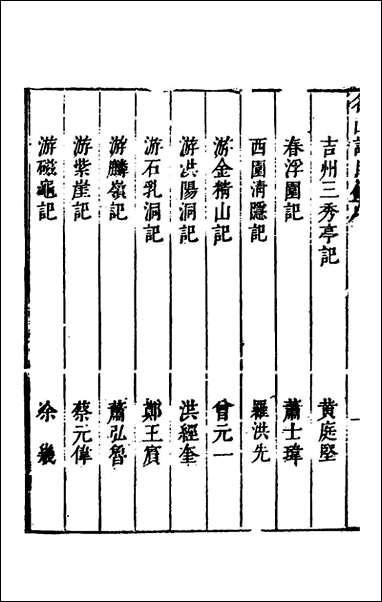 吉州三秀亭記 黄庭堅
春浮園記 蕭士瑋
西園清隱記 羅洪先
游金精山記 曾元一
游洪陽洞記 洪經奎
游石乳洞記 鄭王賔
游麟嶺記 蕭弘智
游紫崖記 蔡元偉
游磁龜記 佘